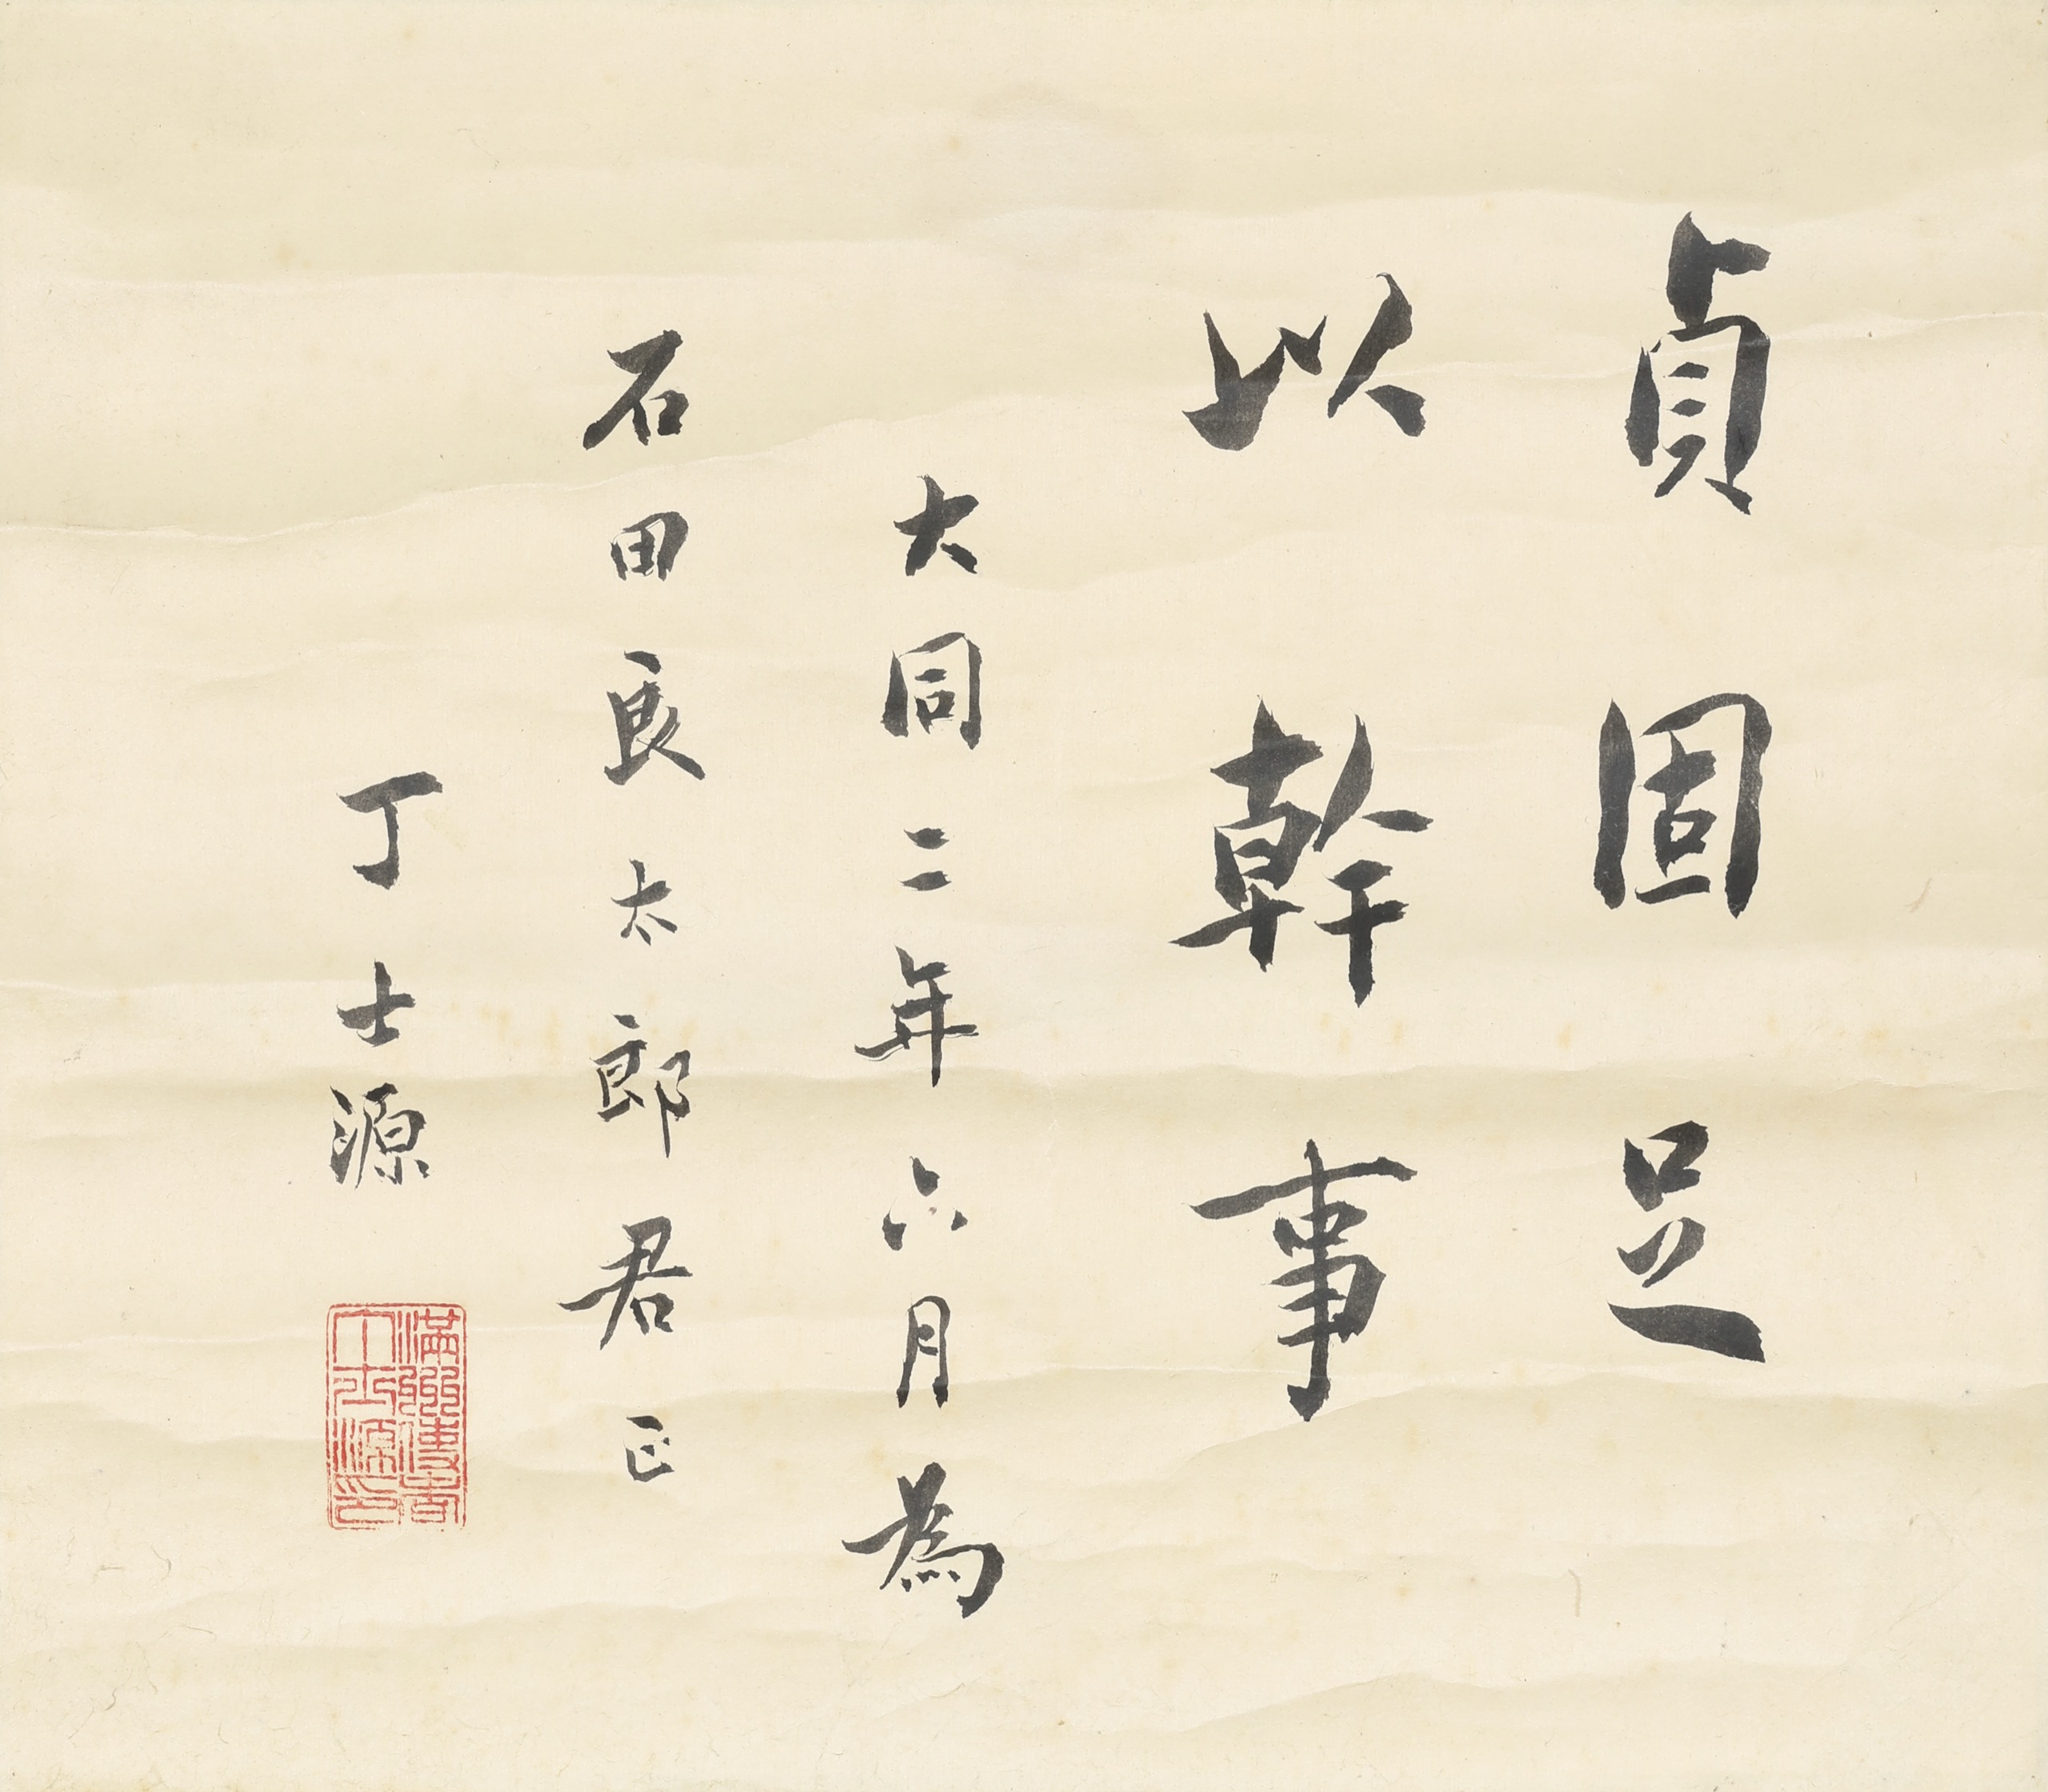 貞固足
以幹事
大同二年六月為
石田良太郎君正
丁士源
丁士源印